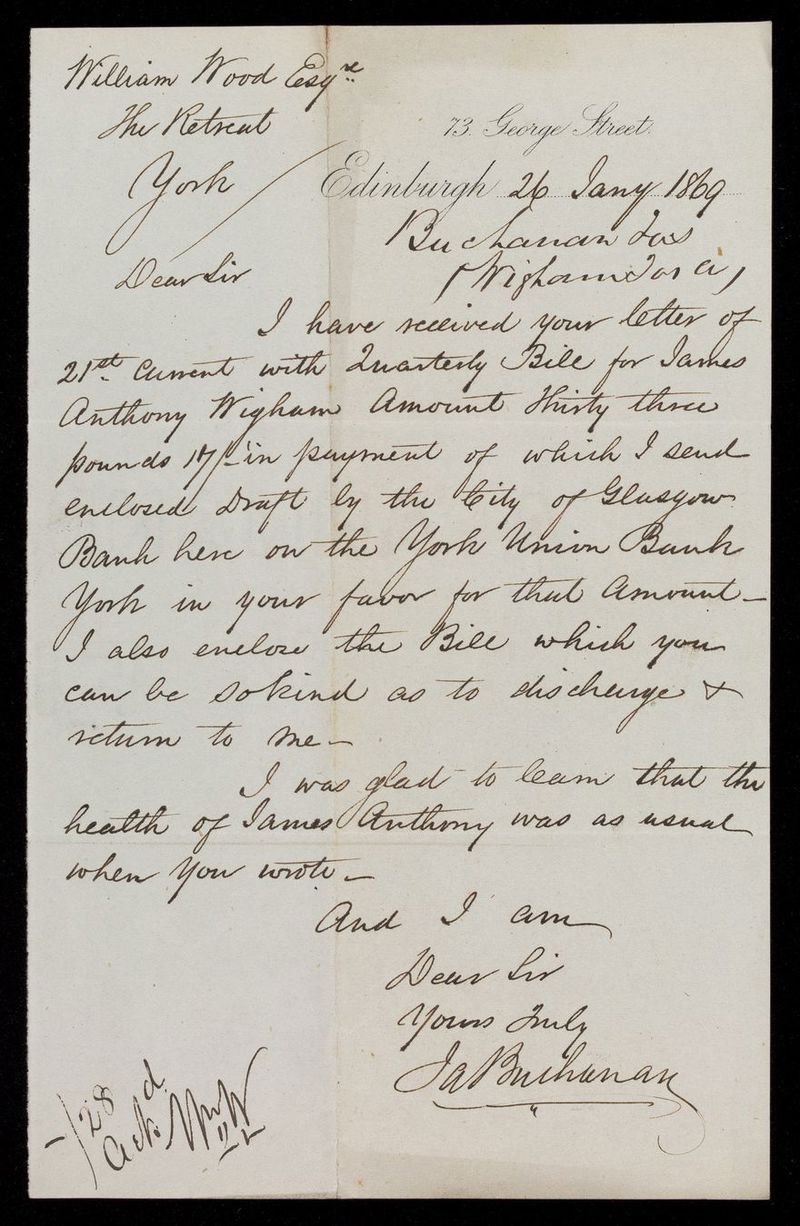 William Wood Esqre
The Retreat
York
73. George Street.
Edinburgh 26 Jany 1869
Buchanan Jas
(Wigham Jas A)
Dear Sir
I have received your letter of
21st. Current with Quarterly Bill for James
Anthony Wigham Amount Thirty three
pounds 17/- in payment of which I send
enclosed Draft by the City of Glasgow
Bank here on the York Union Bank
York in your favor for that Amount –
I also enclose the Bill which you
can be so kind as to discharge &
return to me –
I was glad to learn that the
health of James Anthony was as usual
when you wrote –
And I am
Dear Sir
Yours Truly
Ja Buchanan
28
Ackd. Wm W